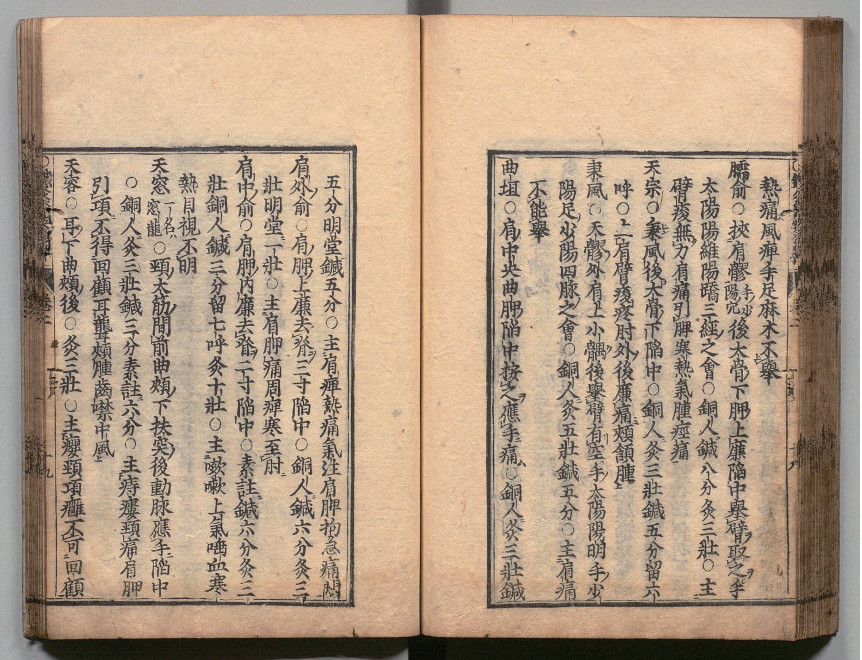 熱痛風痺手足麻木不擧
臑俞○挾肩髎手少陽穴後大骨下胛上廉陷中擧臂取之手
太陽陽維陽蹻三經之會○銅人鍼八分灸三壯○主
臂痠無力肩痛引胛寒熱氣腫痙痛
天宗○秉風後大骨下陷中○銅人灸三壯鍼五分留六
呼○主肩臂痠疼肘外後廉痛頰頷腫
秉風○天髎外肩上小髃後擧臂有空手太陽陽明手少
陽足少陽四脉之會○銅人灸五壯鍼五分○主肩痛
不能擧
曲垣○肩中央曲胛陷中按之應手痛○銅人灸三壯鍼
五分明堂鍼五分○主肩痺熱痛氣注肩胛拘急痛悶
肩外俞○肩胛上廉去脊三寸陷中○銅人鍼六分灸三
壯明堂一壯○主肩胛痛周痺寒至肘
肩中俞○肩胛內廉去脊二寸陷中○素註鍼六分灸三
壯銅人鍼三分留七呼灸十壯○主咳嗽上氣唾血寒
熱目視不明
天窓一名窓龍○頸大筋間前曲頰下扶突後動脉應手陷中
○銅人灸三壯鍼三分素註六分○主痔瘻頸痛肩胛
引項不得回顧耳聾頰腫齒噤中風
天容○耳下曲頰後○灸三壯○主癭頸項癰不可回顧
卷二
十九